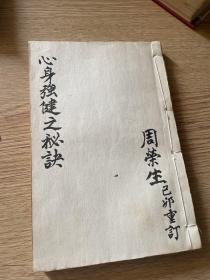 心身強健之秘訣
周榮生己卯重訂